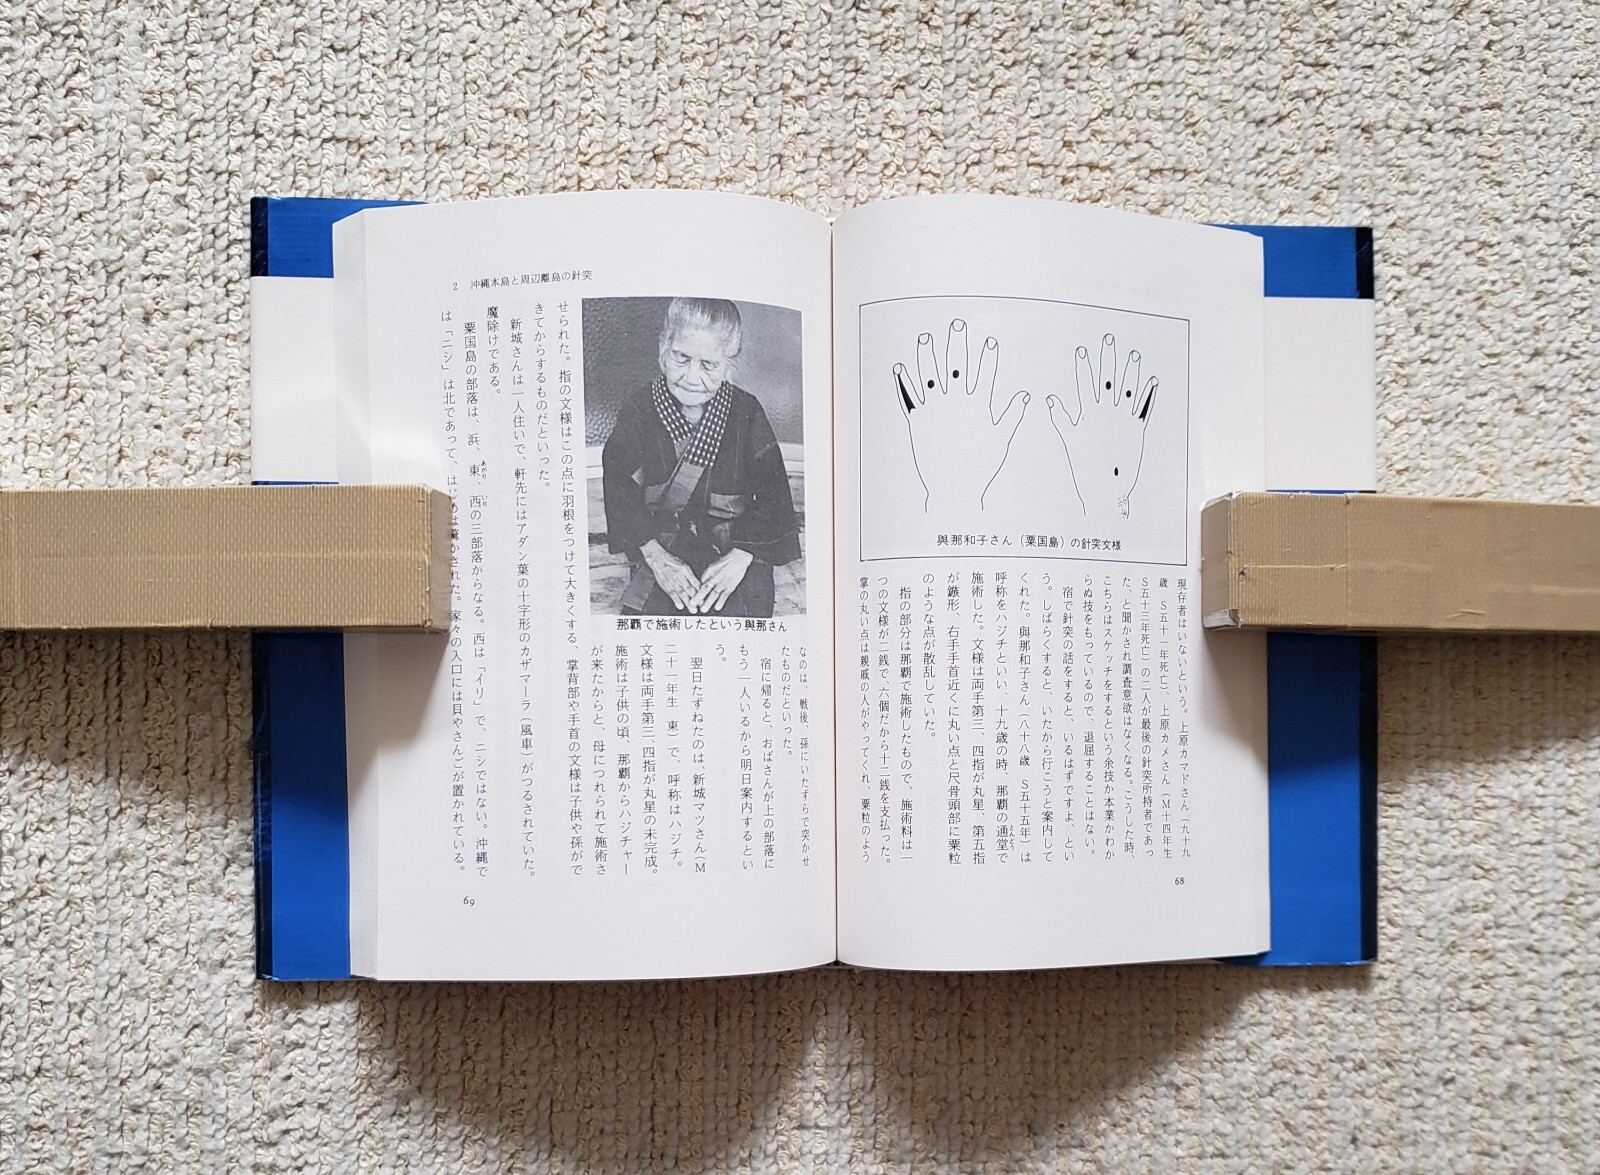 與那和子さん（粟国島）の針突文様
現存者はいないという。上原カマドさん（九十九
歳　S五十一年死亡）、上原カメさん（M十四年生
S五十三年死亡）の二人が最後の針突所持者であっ
た、と聞かされ調査意欲はなくなる。こうした時、
こちらはスケッチをするという余技か本業かわか
らぬ技をもっているので、退屈することはない。
宿で針突の話をすると、いるはずですよ、とい
う。しばらくすると、いたから行こうと案内して
くれた。與那和子さん（八十八歳　S五十五年）は
呼称をハジチといい、十九歳の時、那覇の通堂で
施術した。文様は両手第三、四指が丸星、第五指
が鏃形、右手手首近くに丸い点と尺骨頭部に粟粒
のような点が散乱していた。
指の部分は那覇で施術したもので、施術料は一
つの文様が二銭で、六個だから十二銭を支払った。
掌の丸い点は親戚の人がやってくれ、粟粒のよう
68
2　沖縄本島と周辺離島の針突
那覇で施術したという與那さん
なのは、戦後、孫にいたずらで突かせ
たものだといった。
宿に帰ると、おばさんが上の部落に
もう一人いるから明日案内するとい
う。
翌日たずねたのは、新城マツさん（M
二十一年生　東）で、呼称はハジチ。
文様は両手第三、四指が丸星の未完成。
施術は子供の頃、那覇からハジチャー
が来たからと、母につれられて施術さ
せられた。指の文様はこの点に羽根をつけて大きくする、掌背部や手首の文様は子供や孫がで
きてからするものだといった。
新城さんは一人住いで、軒先にはアダン葉の十字形のカザマーラ（風車）がつるされていた。
魔除けである。
粟国島の部落は、浜、東、西の三部落からなる。西は「イリ」で、ニシではない。沖縄で
は「ニシ」は北であって、はじめは驚かされた。家々の入口には貝やさんごが置かれている。
69